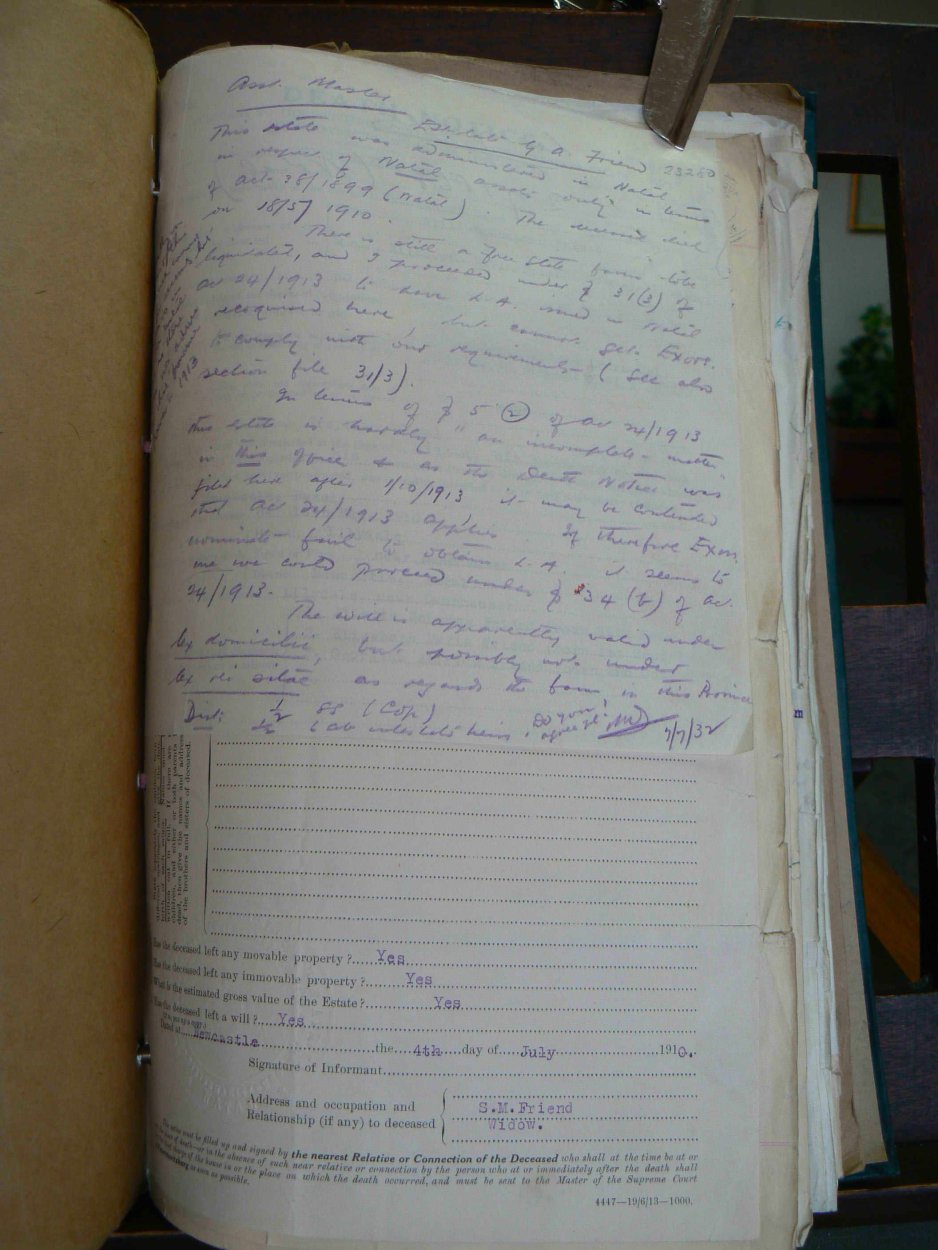 Asst. Master
Estate G. A. Friend 23280
This estate was administered in Natal
in respect of Natal assets only in terms
of Act 38/1899 (Natal). The deceased died
on 18/5/1910.
There is still a Free State farm to be
liquidated, and I proceeded under § 31(3) of
Act 24/1913 to have L.A. issued in Natal
recognised here, but cannot get Exors.
to comply with our requirements (See also
section file 31/3).
In terms of § 5 (2) of Act 24/1913
this estate is hardly "an incomplete matter"
in this office & as the Death Notice was
filed here after 1/10/1913 it may be contended
that Act 24/1913 applies. If therefore Exors.
nominate fail to obtain L.A. it seems to
me we could proceed under § 34 (b) of Act
24/1913.
The will is apparently valid under
lex domicilii, but possibly not under
lex rei sitae as regards the farm in this Province
Dist: ½ SS (COP)
½ (ab intestate heirs. Do you
agree pl. 7/7/32
1913
written out in full. If there are no
children, and either or both parents
dead, then give the names and address
of the brothers and sisters of deceased.
Has the deceased left any movable property? Yes
Has the deceased left any immovable property? Yes
What is the estimated gross value of the Estate? Yes
Has the deceased left a will? Yes
Dated at Newcastle the 4th day of July 1910.
Signature of Informant
Address and occupation and
Relationship (if any) to deceased
S.M.Friend
Widow.
This notice must be filled up and signed by the nearest Relative or Connection of the Deceased who shall at the time be at or
of death—or in the absence of such near relative or connection by the person who at or immediately after the death shall
charge of the house in or the place on which the death occurred, and must be sent to the Master of the Supreme Court
as soon as possible.
4447—19/6/13—1000.